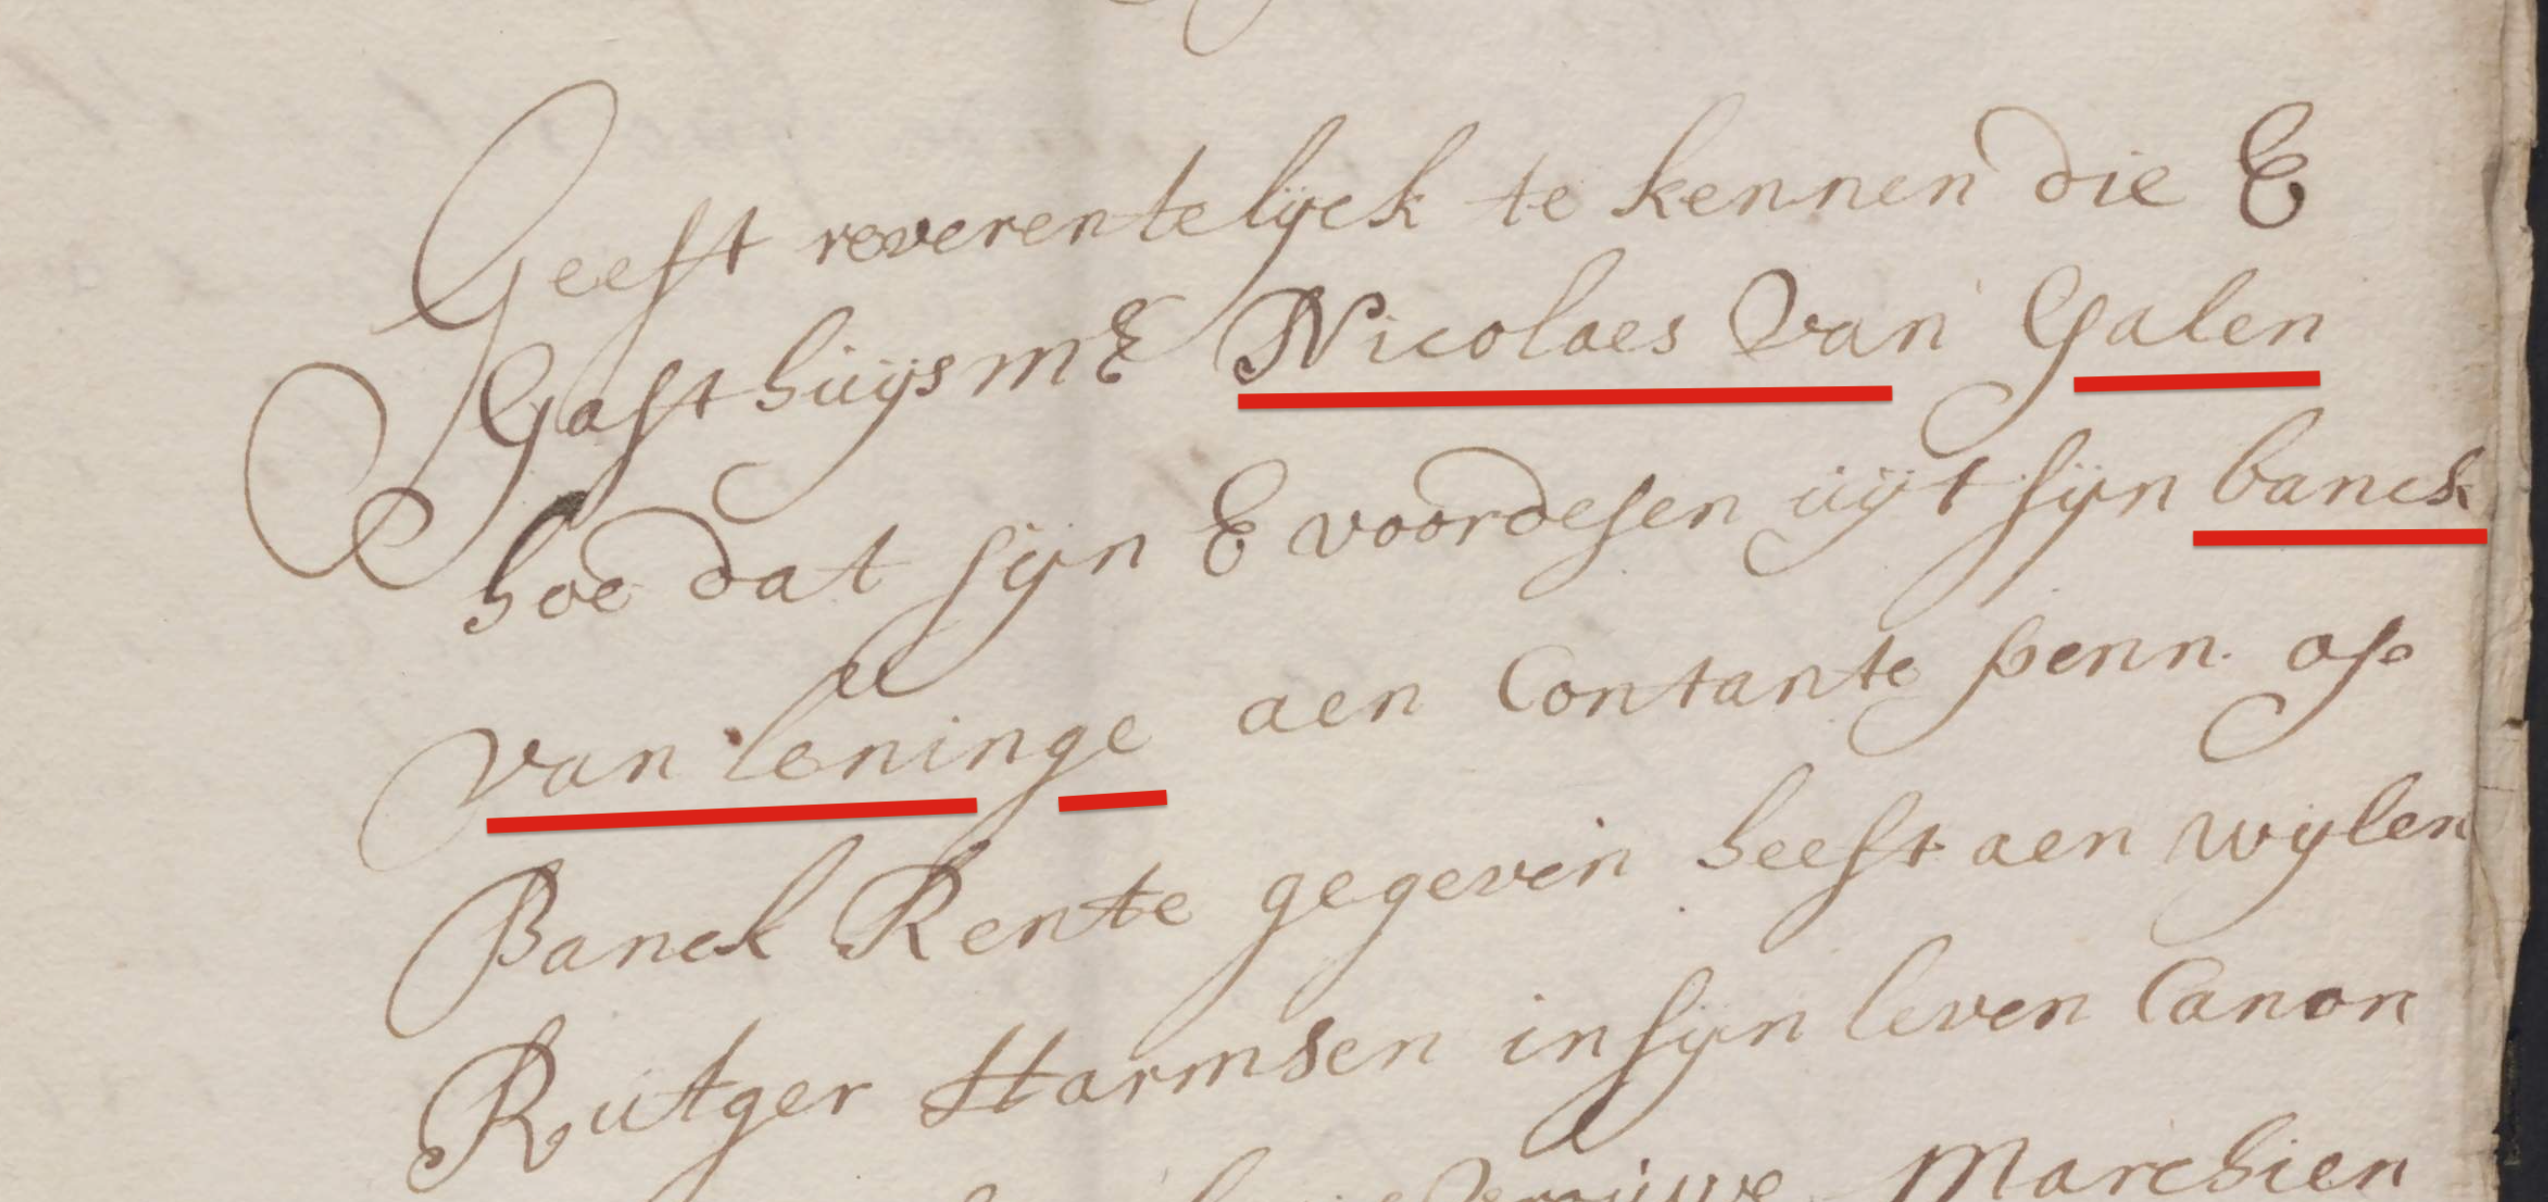 Geeft reverentelijck te kennen die E
Gasthuijs mE Nicolaes Van Galen
hoe dat sijn E voordesen uijt sijn banck
van leninge aen Contante penn. op
Banck Rente gegeven heeft aen wijlen
Rutger Harmsen in sijn leven Canon
Marchien